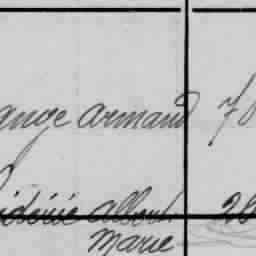 ange Armand 78
idérie Albert 28
Marie